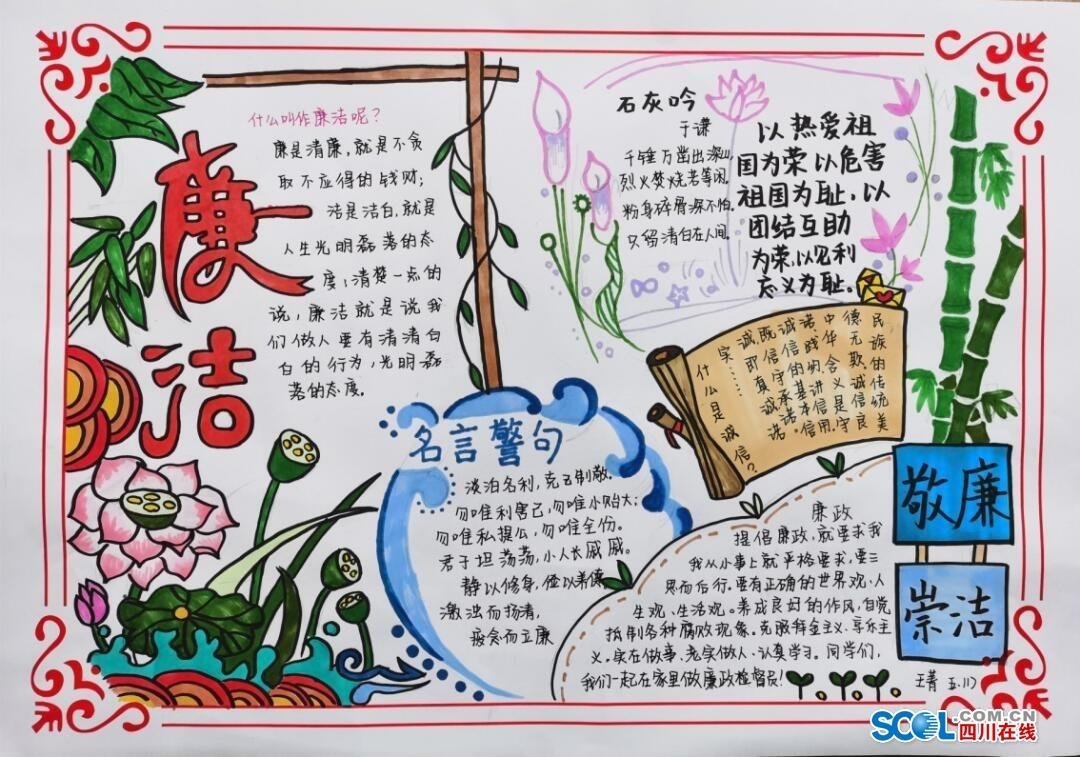 廉洁
什么叫作廉洁呢?
廉是清廉,就是不贪
取不应得的钱财;
洁是洁白,就是
人生光明磊落的态
度;清楚一点的
说,廉洁就是说我
们做人要有清清白
白的行为,光明磊
落的态度。
石灰吟
于谦
千锤万凿出深山,
烈火焚烧若等闲。
粉身碎骨浑不怕,
只留清白在人间。
以热爱祖
国为荣以危害
祖国为耻,以
团结互助
为荣,以见利
忘义为耻。
什么是诚信?
民族的传统美
德无欺诚信守良
中华含义是
诺信践的内讲信用
诚信守的基本
既真诚承诺。
诚即
实……
名言警句
淡泊名利,克己制敬。
勿唯利害己,勿唯小贻大;
勿唯私提公,勿唯全份。
君子坦荡荡,小人长戚戚。
静以修身,俭以养德
激浊而扬清,
疲贪而立廉
廉政
提倡廉政,就要求我
我从小事上就严格要求,要三
思而后行。要有正确的世界观、人
生观、生活观。养成良好的作风,自觉
抵制各种腐败现象。克服拜金主义、享乐主
义。实在做事、老实做人、认真学习。同学们,
我们一起在家里做廉政检督员!
敬廉
崇洁
王菁 五.11
SCOL.COM.CN
四川在线